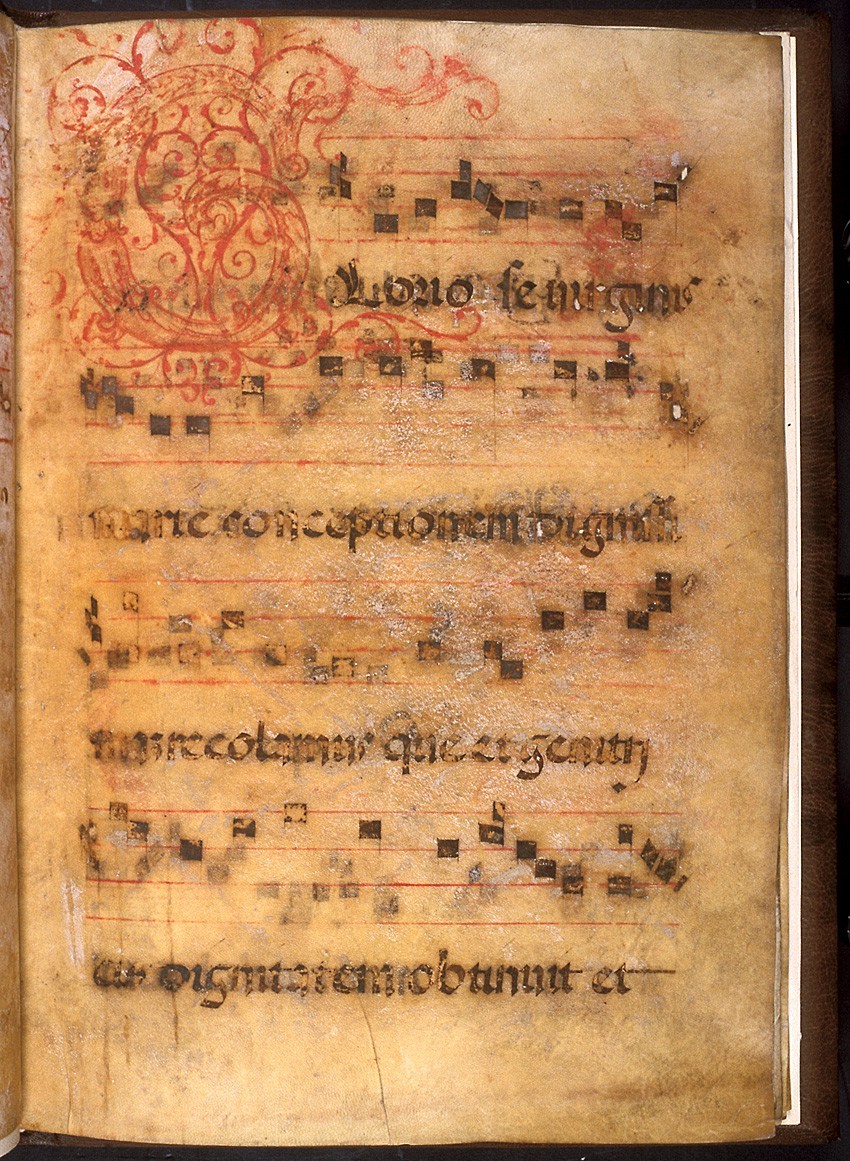 Glorio se uirginis
marie conceptionem dignissi
mam recolamus que et genitri
cis dignitatem obtinuit et